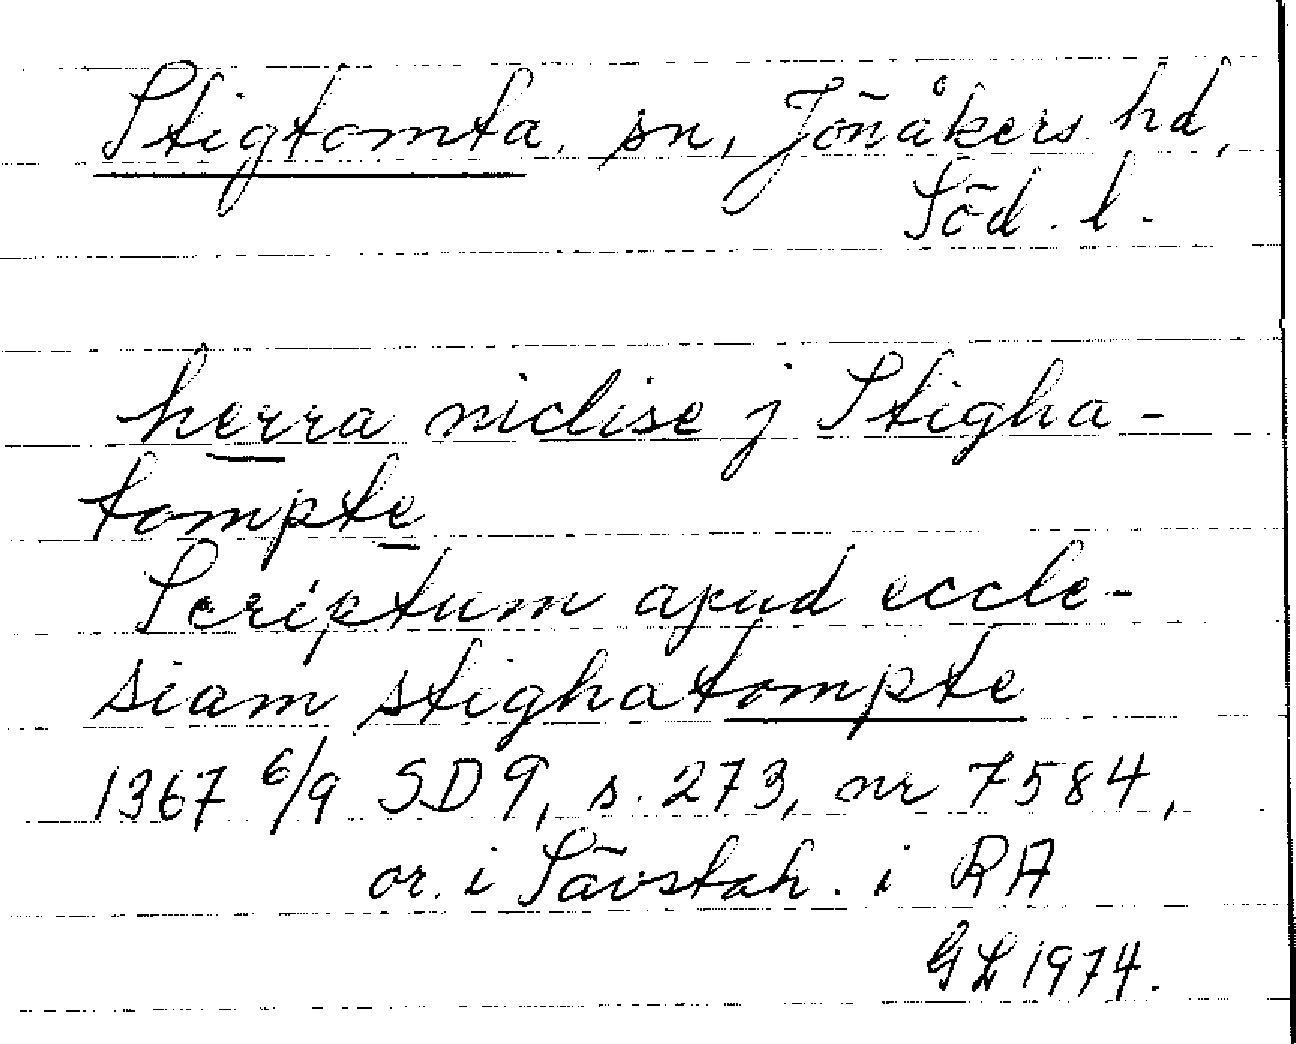 Stigtomta, sn, Jönåkers hd,
Söd. l.
herra niclise j Stigha-
tompte
Scriptum apud eccle-
siam stighatompte
1367 6/9 SD 9, s. 273, nr 7584,
or. i Sävstah. i RA
GL 1974.